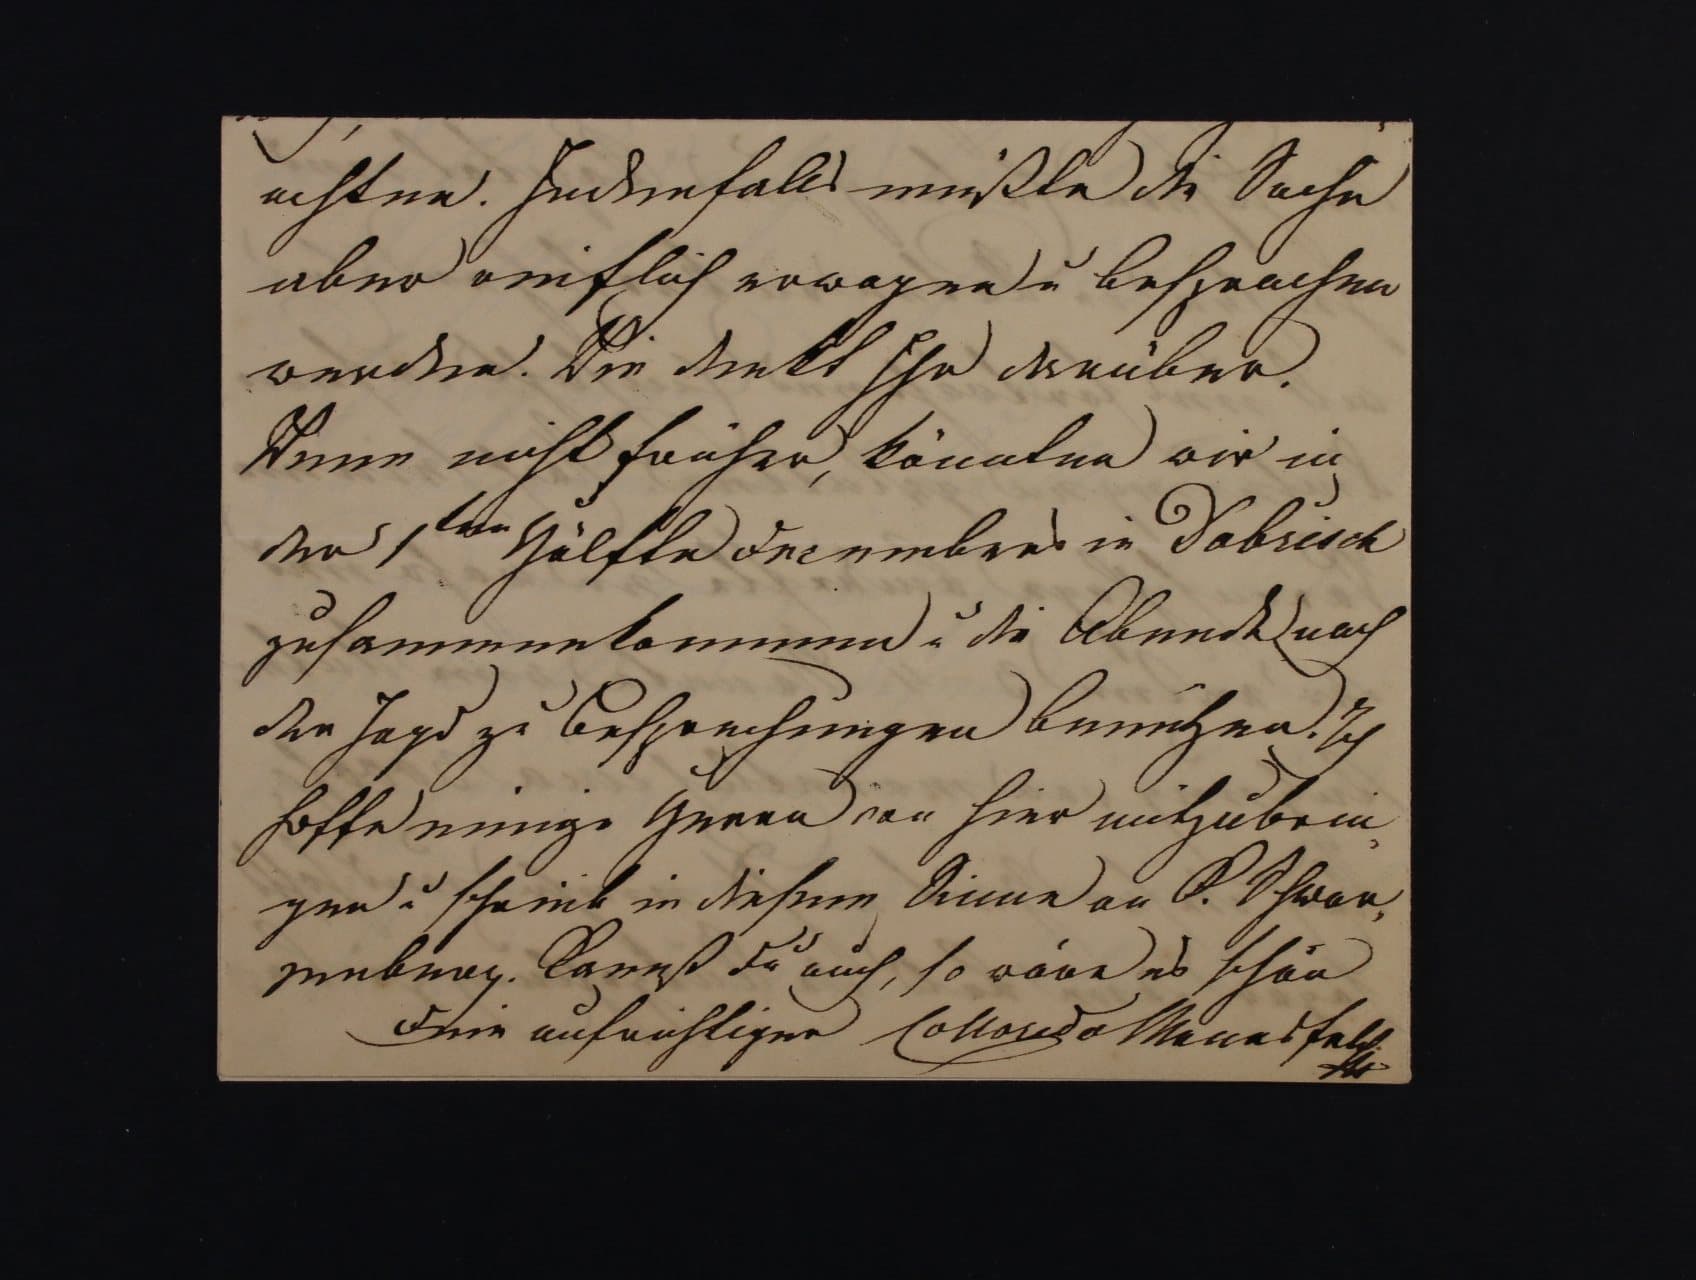 achten. Jedenfalls müßte die Sache
aber reiflich erwogen u besprochen
werden. Wie denkt Ihr darüber.
Wenn nicht früher, könnten wir in
der 1ten Hälfte Decembers in Dobrisch
zusammenkommen u die Abende nach
der Jagd zu Besprechungen benützen. Ich
hoffe einige Herren von hier mitzubrin,
gen u schrieb in diesem Sinne an C. Schwar,
zenberg. Kannst Du auch, so wäre es schön
Dein aufrichtiger Colloredo Mannsfeld